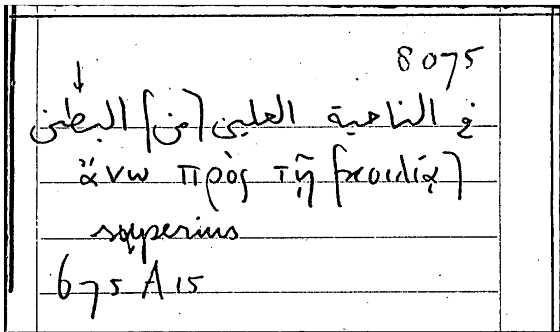 8075
↓
في الناحية العليى [من] البطن
ἄνω πρὸς τῇ [κοιλίᾳ]
superius
675 A 15